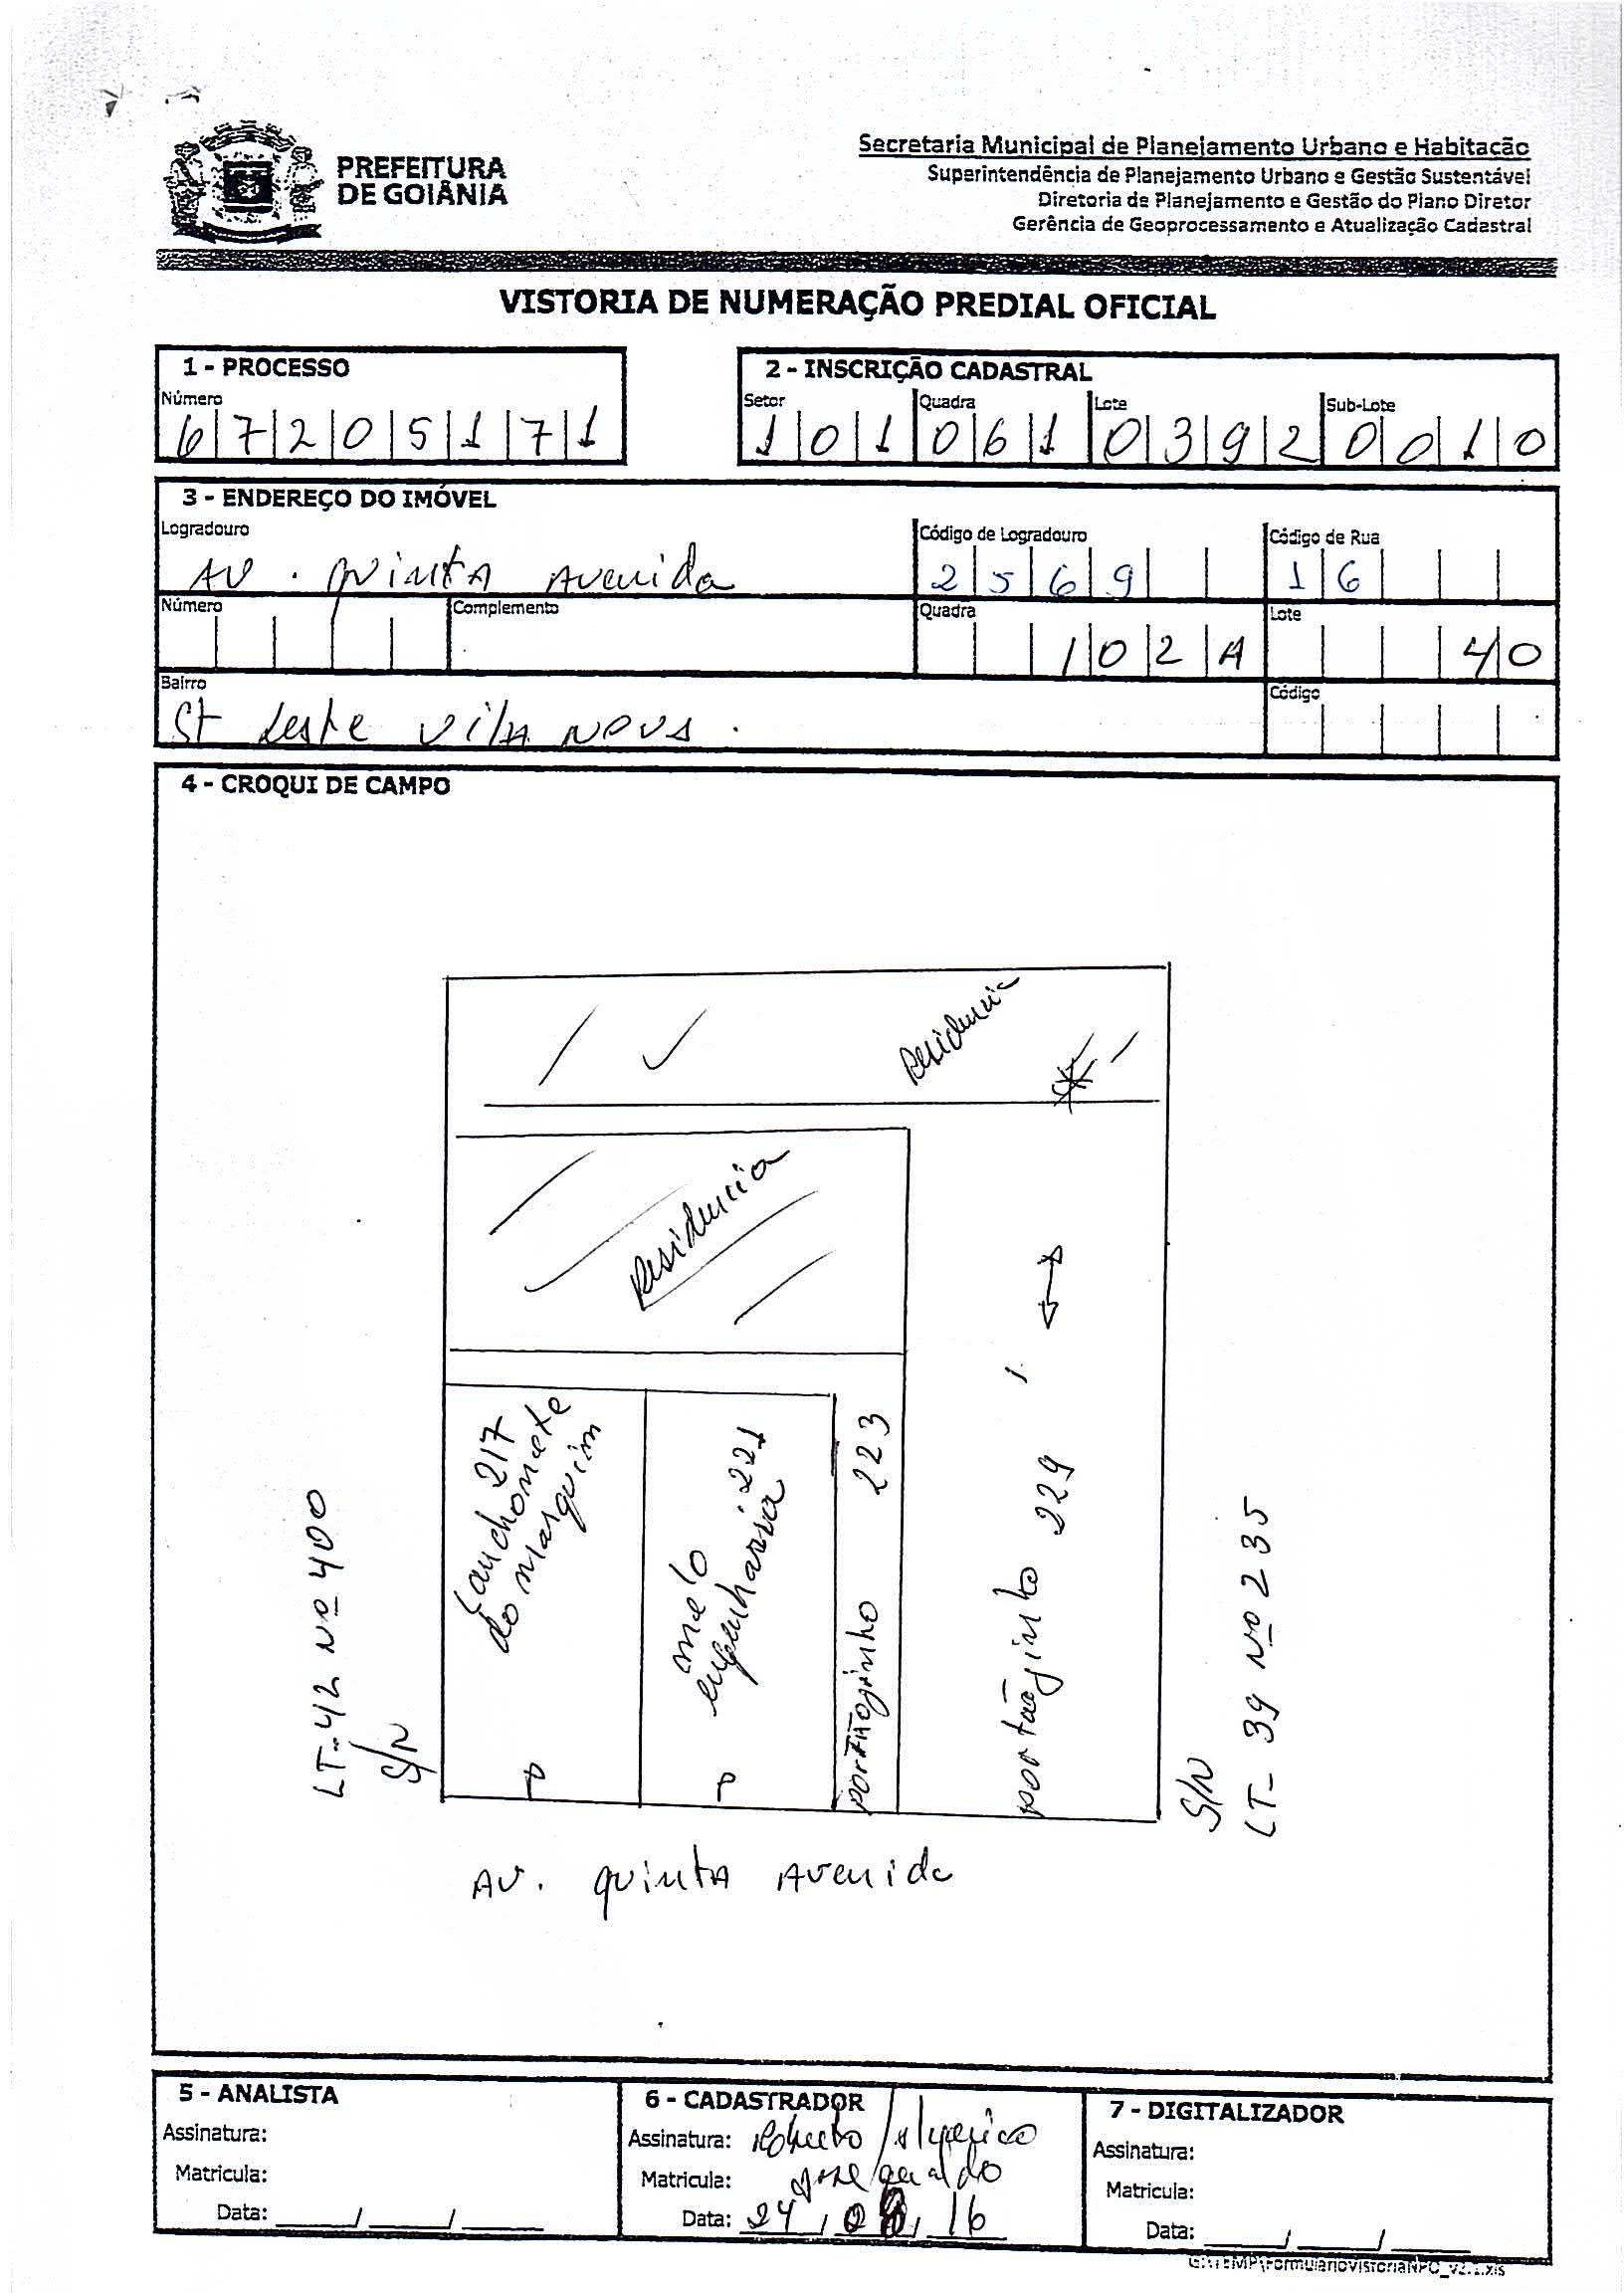 PREFEITURA
DE GOIÂNIA
Secretaria Municipal de Planejamento Urbano e Habitação
Superintendência de Planejamento Urbano e Gestão Sustentável
Diretoria de Planejamento e Gestão do Plano Diretor
Gerência de Geoprocessamento e Atualização Cadastral
VISTORIA DE NUMERAÇÃO PREDIAL OFICIAL
1 - PROCESSO
Número
67205171
2 - INSCRIÇÃO CADASTRAL
Setor Quadra Lote Sub-Lote
101 061 0392 0010
3 - ENDEREÇO DO IMÓVEL
Logradouro Código de Logradouro Código de Rua
AV. QUINTA AVENIDA 2569 16
Número Complemento Quadra Lote
102A 40
Bairro Código
St Leste Vila Nova.
4 - CROQUI DE CAMPO
Residencia
Residencia
217
Lanchonete
do Marquim
221
melo
engenharia
portãoginho 223
portãoginho 229
LT-42 Nº 400
S/N
S/N
LT- 39 Nº 235
AV. QUINTA AVENIDA
5 - ANALISTA
Assinatura:
Matricula:
Data: __/__/__
6 - CADASTRADOR
Assinatura: Roberto /
José Geraldo
Matricula:
Data: 24/08/16
7 - DIGITALIZADOR
Assinatura:
Matricula:
Data: __/__/__
G:\TEMP\FormularioVistoriaNPO_v2.1.xls